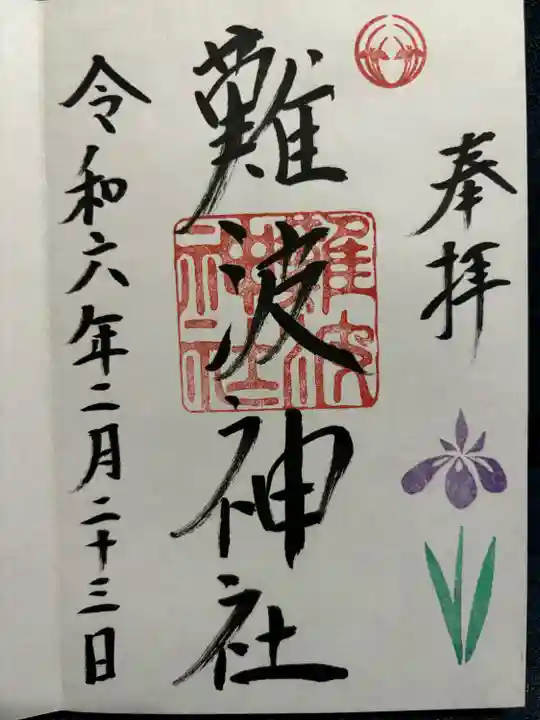 奉拝
難波神社
難波神社
令和六年二月二十三日